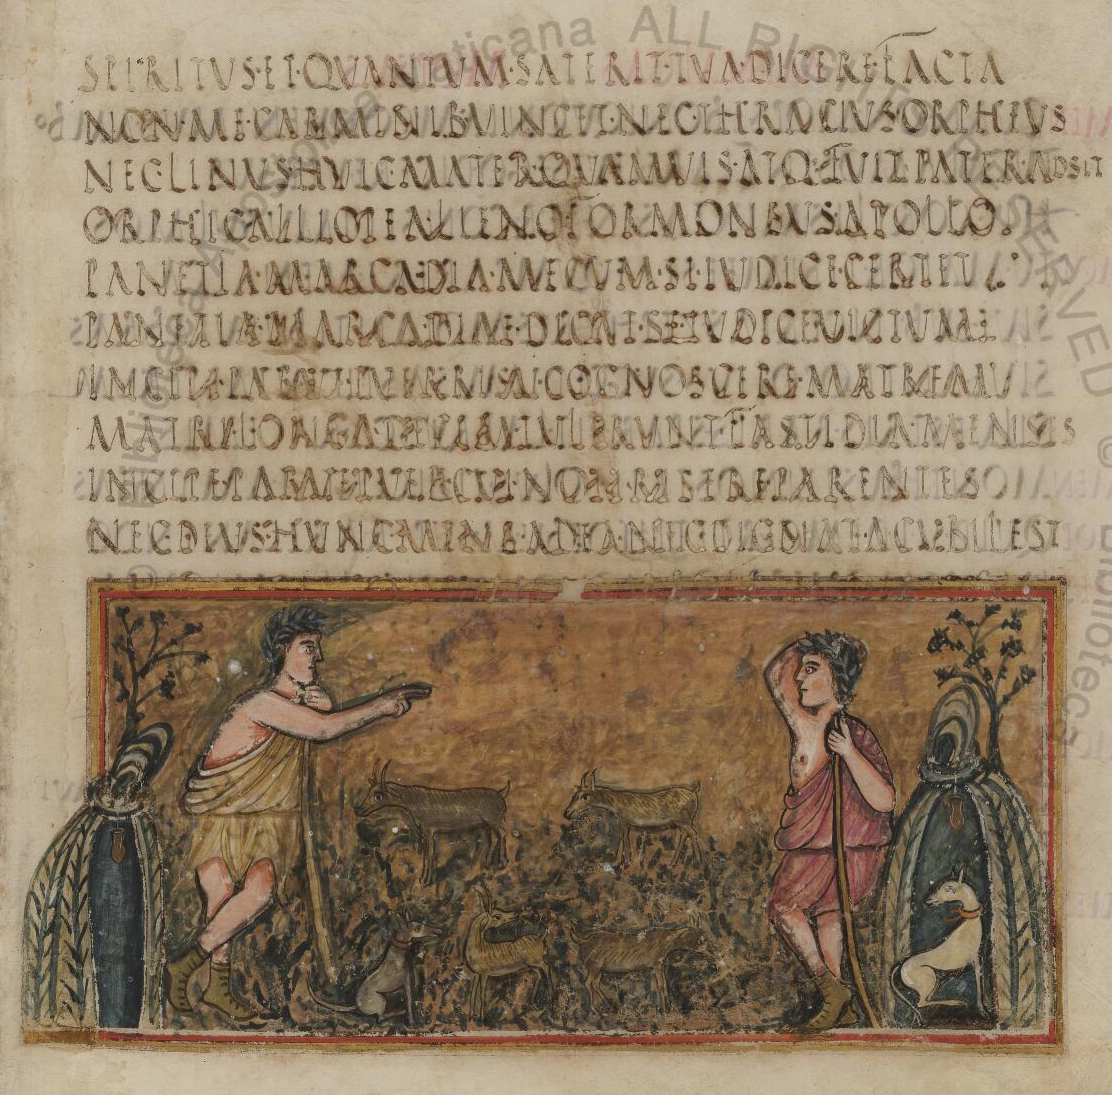 SPIRITVS·ET·QVANTVM·SATERIT·TVA·DICERE·FACTA
NON·ME·CARMINIB·VINCET·NEC·THRACIVS·ORPHEVS
NEC·LINVS·HVIC·MATER·QVAMVIS·ATQ· PATER·ADSIT
ORPHI·CALLIOPEA·LINO·FORMONSVS·APOLLO·
PAN·ETIAM·ARCADIA·MECVM·SI·IVDICE·CERTET
PAN·ETIAM·ARCADIA SE·IVDICE
INCIPE·PARVE·PVER·RISV·COGNOSCERE·MATREM
MATRI·LONGA TVLERVNT·FASTIDIA·MENSES
INCIPE·PARVE·PVER·CVI·NON·RISERE·PARENTES
NEC·DEVS·HVNC CVBILEST
© Biblioteca Apostolica Vaticana ALL RIGHTS RESERVED © Biblioteca